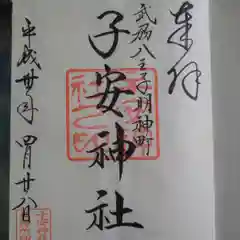 奉拝
武州八王子明神町
子安神社
平成廿年四月廿八日